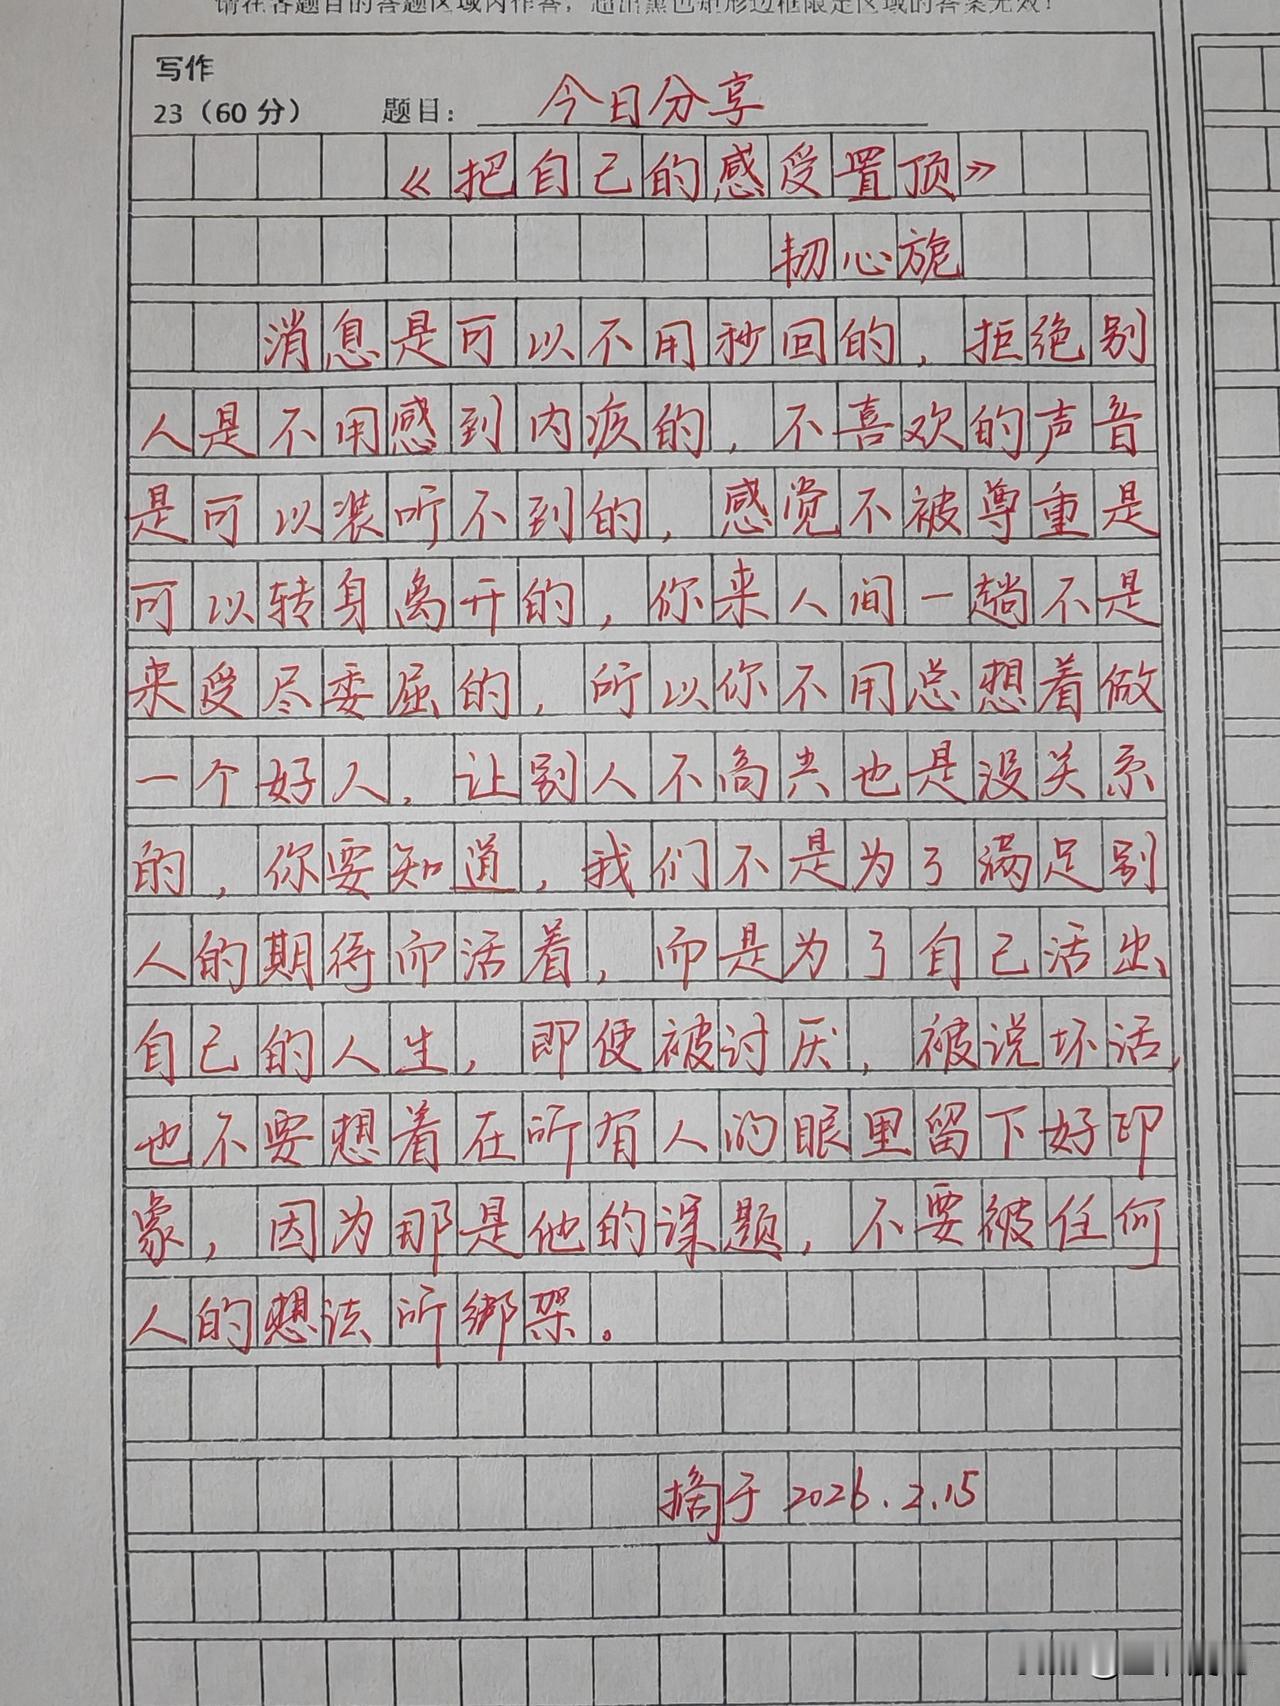 请在各题目的答题区域内作答，超出黑色矩形边框限定区域的答案无效！
写作
23（60分） 题目： 今日分享
《把自己的感受置顶》
韧心旎
消息是可以不用秒回的，拒绝别
人是不用感到内疚的，不喜欢的声音
是可以装听不到的，感觉不被尊重是
可以转身离开的，你来人间一趟不是
来受尽委屈的，所以你不用总想着做
一个好人，让别人不高兴也是没关系
的，你要知道，我们不是为了满足别
人的期待而活着，而是为了自己活出
自己的人生，即使被讨厌，被说坏话，
也不要想着在所有人的眼里留下好印
象，因为那是他的课题，不要被任何
人的想法所绑架。
摘于2026.2.15